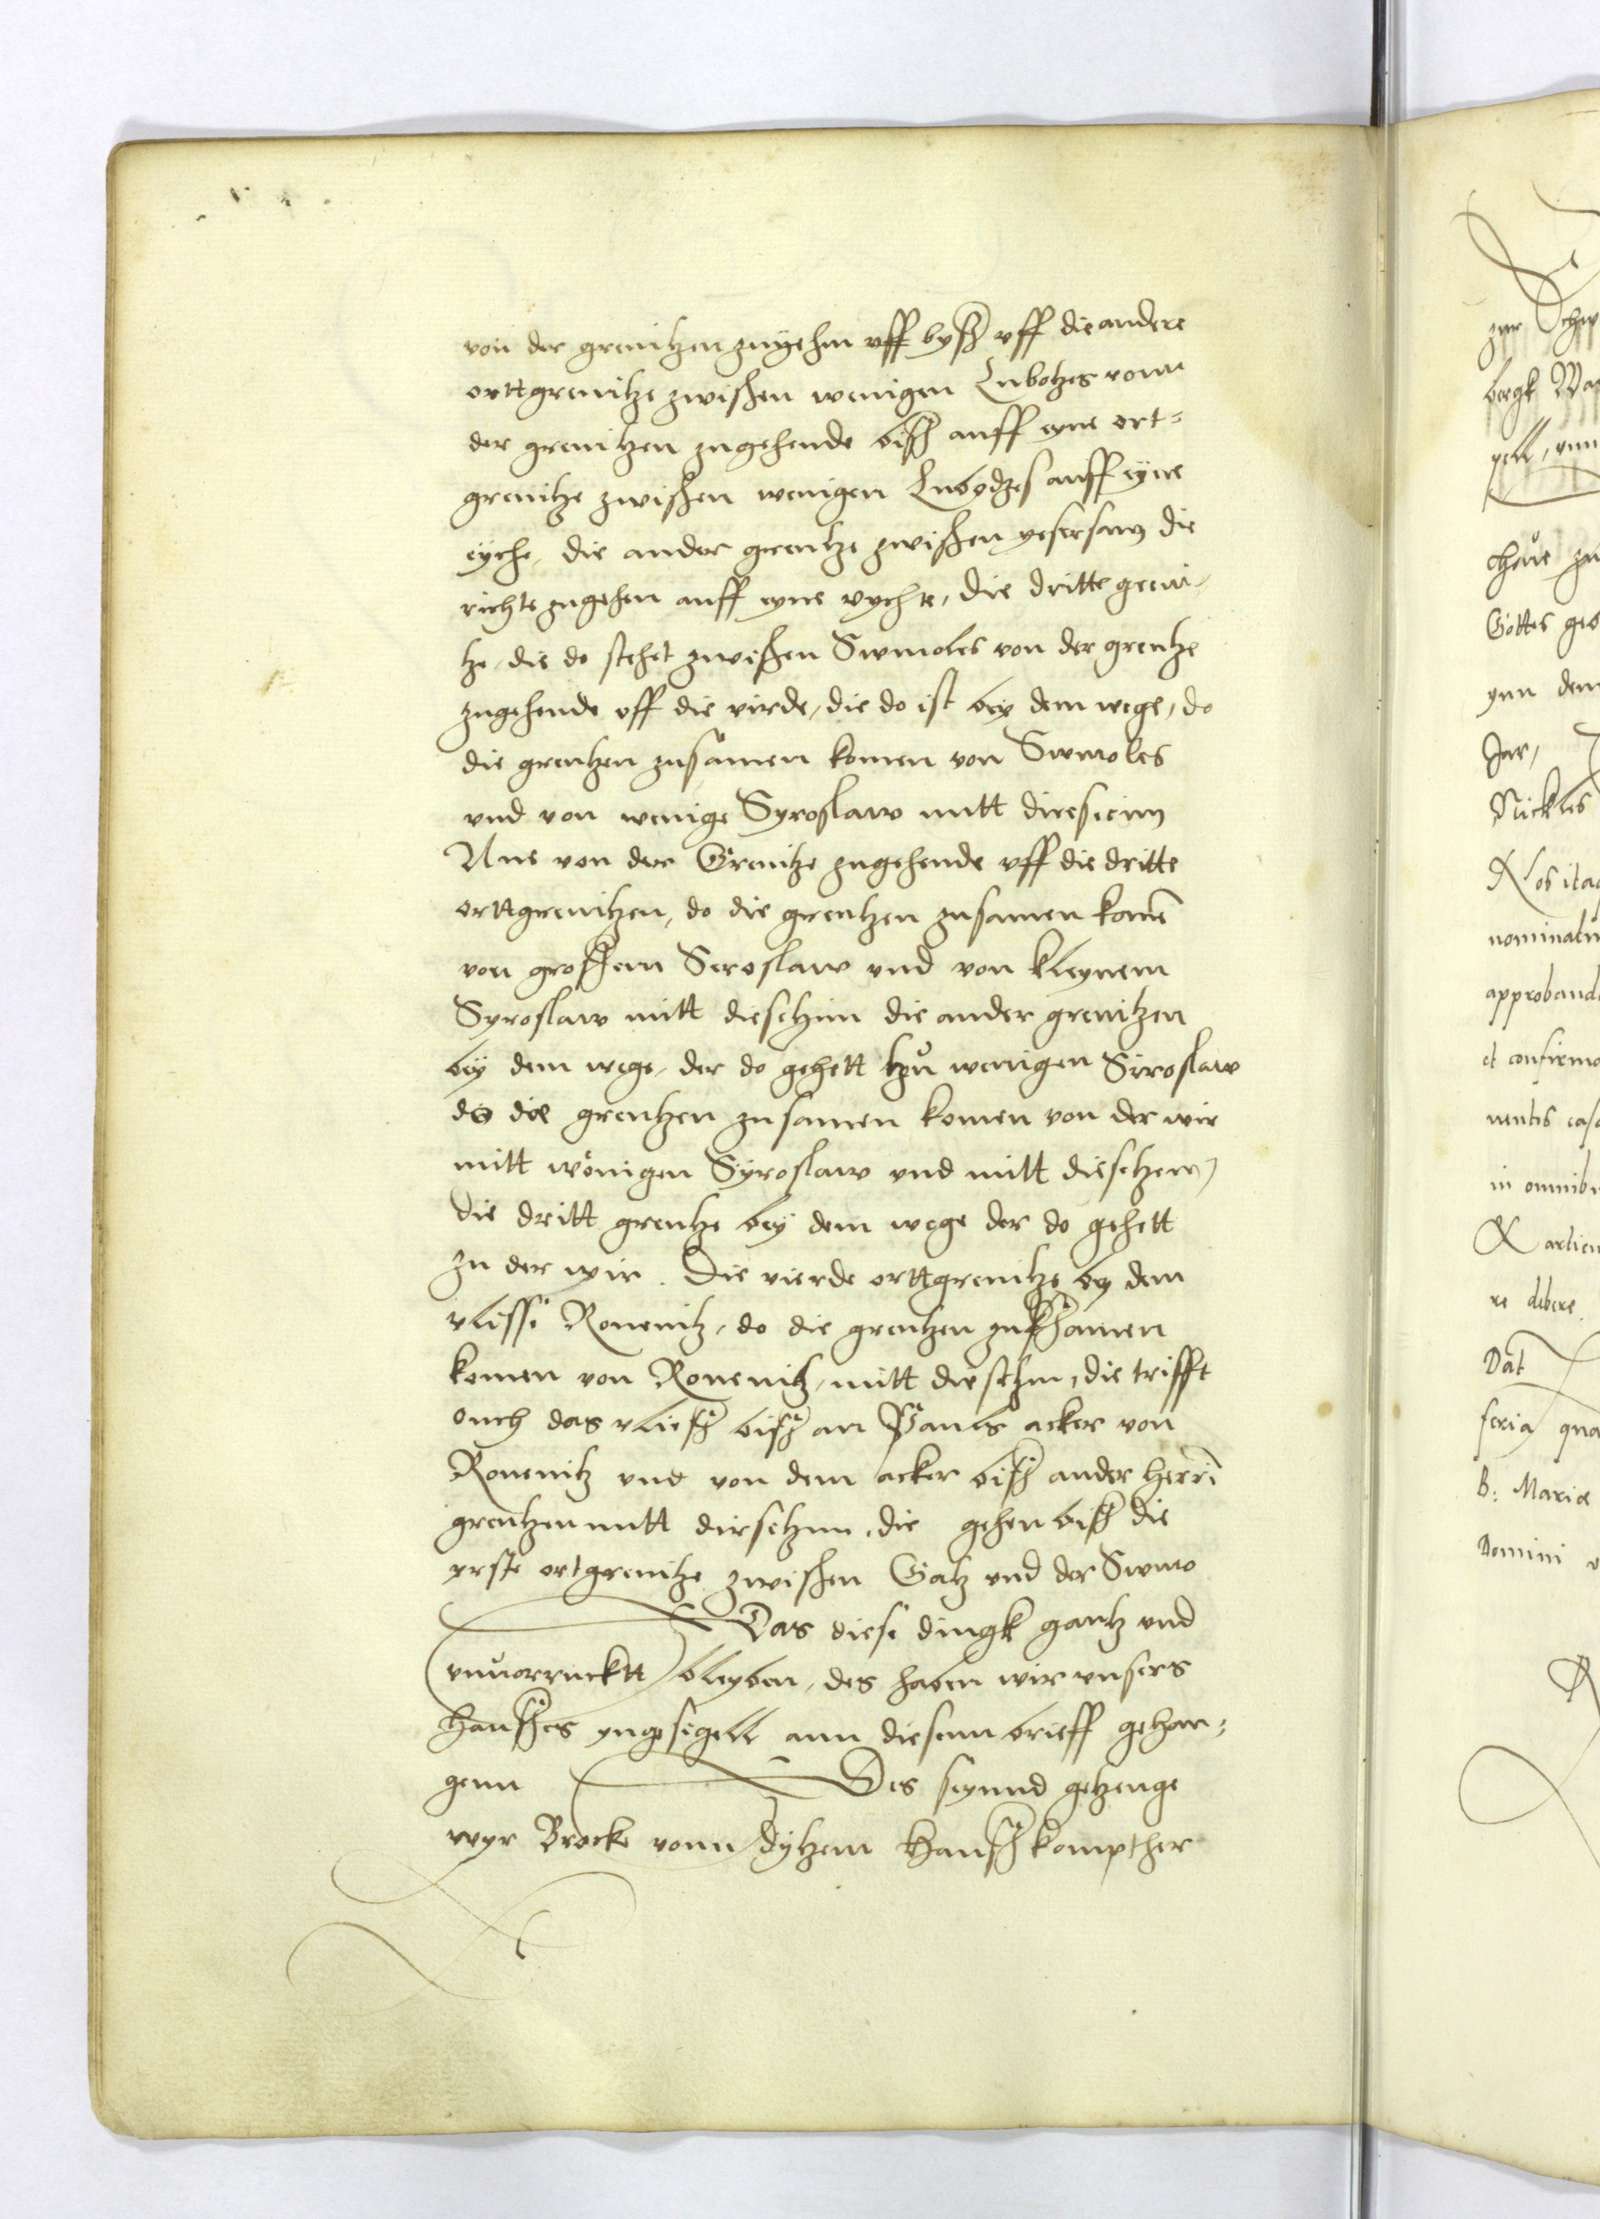 von der grenitzen zugehen uff bysz uff die andere
orttgrenitze zwischen wenigen Lubotzes vonn
der grenitzen zugehende bisz auff eyne ort-
grenitze zwischen wenigen Lubydzes auff eyne
eyche, die ander grentze zwischen die
richte zugehen auff eyne eyche, die dritte greni-
tze, die do stehet zwischen Swmoles von der grentze
zugehende uff die virde, die do ist bey dem wege, do
die grentzen zusamen komen von Swmoles
und von wenige Syroslaw mitt
von der Grenitze zugehende uff die dritte
orttgrenitzen, do die grentzen zusamen komē
von groszem Seroslaw und von kleynem
Syroslaw mitt dieschzin die ander grenitzen
bey dem wege, der do gehett tzu wenigen Siroslaw
do die grentzen zusamen komen von der wir
mitt wenigen Syroslaw und mitt
die dritt grentze bey dem wege der do gehett
zu der wyr. Die vierde orttgrenitze bey dem
vlissi Ronenitz, do die grentzen zuszamen
komen von Ronenitz, mitt, die trifft
ouch das vliesz bisz an Pauls acker von
Ronenitz und von dem acker bisz ander herrn
grentzen mitt, die gehen bisz die
yrste ortgrenitze zwischen Galz und der Swmo
Das diese dingk gantz und
unvorrucktt bleyben, des haben wir unsers
hauszes yngesigell ann diesenn brieff gehan-
genn Des seynnd getzenge
wyr Brocke vonn dytzem Hausz kompther
zur
bergk
pell, unn
Gottes
ynn dem
Jar,
Nickles
Nos
approband
et confirm
nentis
in omnib
re debere.
Dat
feria
B: Mariæ
Domini